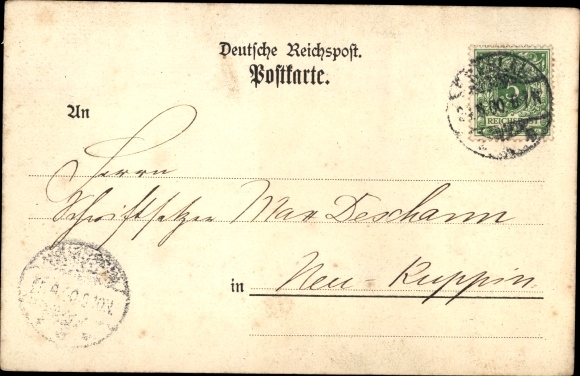 Deutsche Reichspost.
Postkarte.
5
REICHSPOST
An
Herrn
Schriftsetzer Max Deschann
in Neu-Ruppin